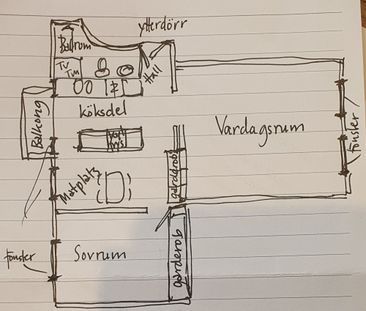 ytterdörr
Badrum
TV
TM
Hall
köksdel
Balkong
Vardagsrum
fönster
garderob
Matplats
Sovrum
fönster
garderob